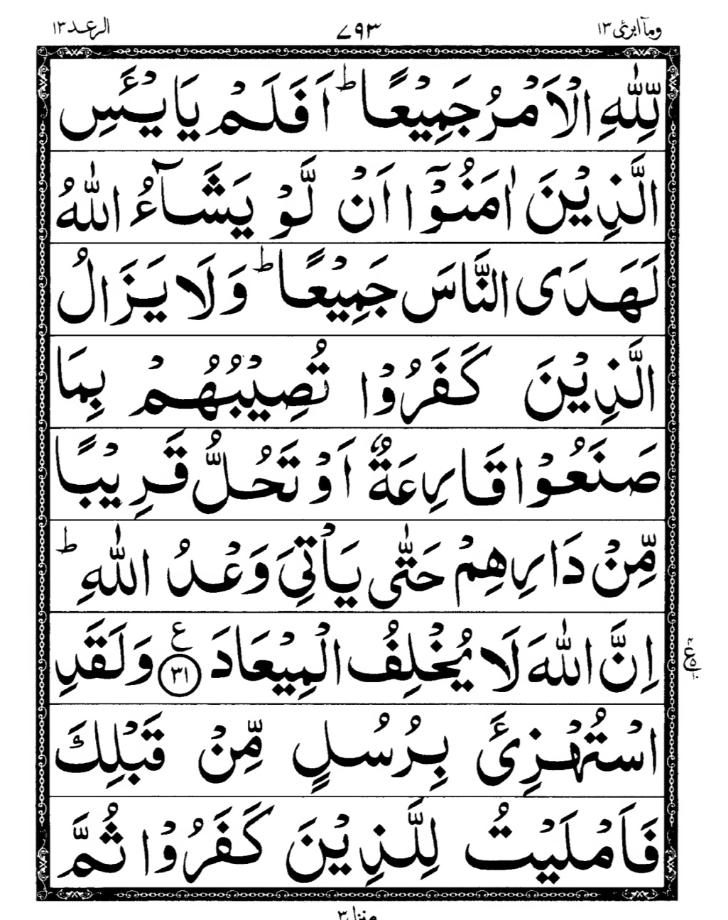 ومآ ابرئ ١٣ ٧٩٣ الرعد ١٣
لِّلّٰهِ الْاَمْرُ جَمِيْعًا ؕ اَفَلَمْ يَايْـَٔسِ
الَّذِيْنَ اٰمَنُوْۤا اَنْ لَّوْ يَشَآءُ اللّٰهُ
لَهَدَى النَّاسَ جَمِيْعًا ؕ وَلَا يَزَالُ
الَّذِيْنَ كَفَرُوْا تُصِيْبُهُمْ بِمَا
صَنَعُوْا قَارِعَةٌ اَوْ تَحُلُّ قَرِيْبًا
مِّنْ دَارِهِمْ حَتّٰى يَاْتِيَ وَعْدُ اللّٰهِ ؕ
اِنَّ اللّٰهَ لَا يُخْلِفُ الْمِيْعَادَ ﴿٣١﴾ ع وَلَقَدِ
اسْتُهْزِئَ بِرُسُلٍ مِّنْ قَبْلِكَ
فَاَمْلَيْتُ لِلَّذِيْنَ كَفَرُوْا ثُمَّ
منزل ٣